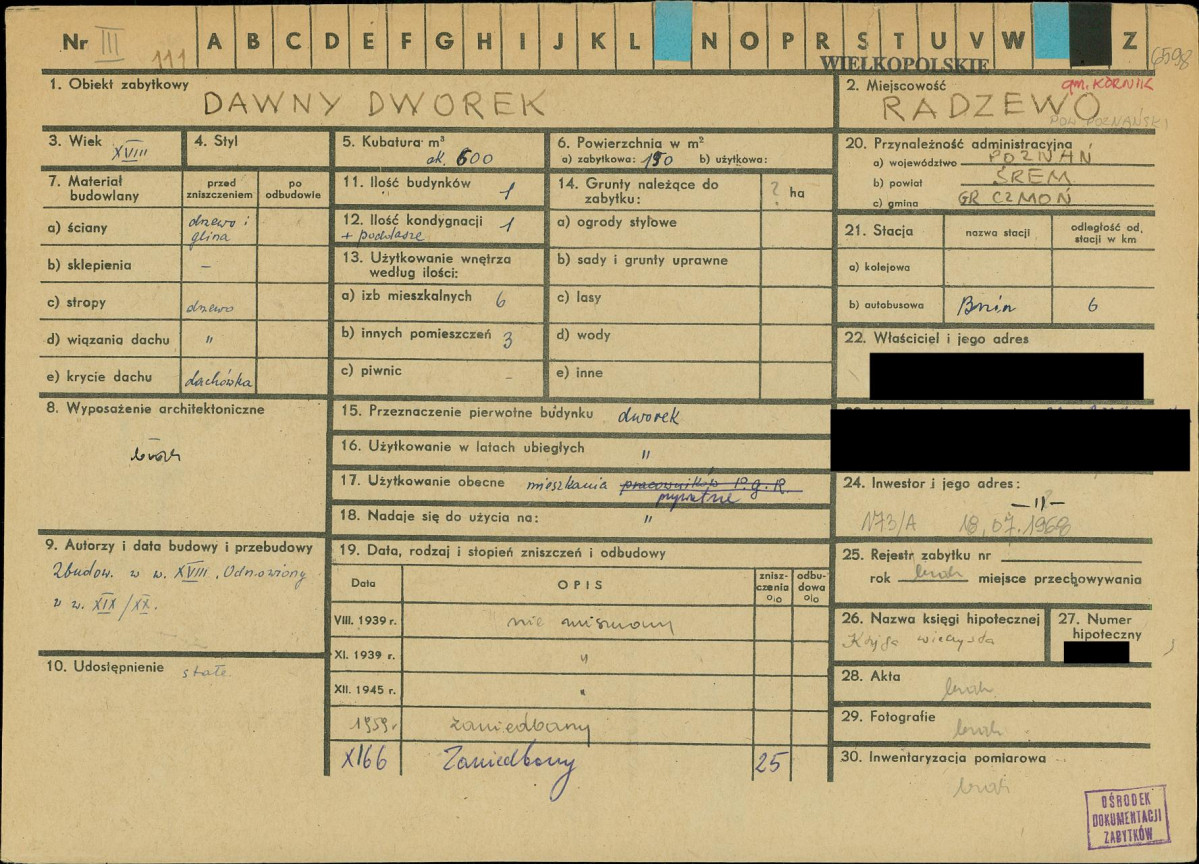 Nr III 111 A B C D E F G H I J K L N O P R S T U V W Z 6598
WIELKOPOLSKIE
1. Obiekt zabytkowy
DAWNY DWOREK
2. Miejscowość gm. KÓRNIK
RADZEWO
POW. POZNAŃSKI
3. Wiek XVIII
4. Styl
5. Kubatura m³
ok. 600
6. Powierzchnia w m²
a) zabytkowa: 150 b) użytkowa:
7. Materiał budowlany
przed zniszczeniem
po odbudowie
a) ściany drzewo i glina
b) sklepienia –
c) stropy drzewo
d) wiązania dachu "
e) krycie dachu dachówka
8. Wyposażenie architektoniczne
brak
9. Autorzy i data budowy i przebudowy
Zbudow. w w. XVIII. Odnowiony
w w. XIX/XX.
10. Udostępnienie stałe
11. Ilość budynków 1
12. Ilość kondygnacji 1
+ poddasze
13. Użytkowanie wnętrza
według ilości:
a) izb mieszkalnych 6
b) innych pomieszczeń 3
c) piwnic –
14. Grunty należące do
zabytku: ? ha
a) ogrody stylowe
b) sady i grunty uprawne
c) lasy
d) wody
e) inne
15. Przeznaczenie pierwotne budynku dworek
16. Użytkowanie w latach ubiegłych "
17. Użytkowanie obecne mieszkania pracowników P.G.R.
prywatne
18. Nadaje się do użycia na: "
19. Data, rodzaj i stopień zniszczeń i odbudowy
Data OPIS zniszczenia o/o odbudowa o/o
VIII. 1939 r. nie niszczony
XI. 1939 r. "
XII. 1945 r. "
1959 r. zaniedbany
XI66 Zaniedbany 25
20. Przynależność administracyjna
a) województwo POZNAŃ
b) powiat ŚREM
c) gmina GR CZMOŃ
21. Stacja nazwa stacji odległość od, stacji w km
a) kolejowa
b) autobusowa Bnin 6
22. Właściciel i jego adres
24. Inwestor i jego adres:
–"–
173/A 18.07.1968
25. Rejestr zabytku nr
rok brak miejsce przechowywania
26. Nazwa księgi hipotecznej
Księga wieczysta
27. Numer
hipoteczny
28. Akta
brak
29. Fotografie
brak
30. Inwentaryzacja pomiarowa
brak
OŚRODEK
DOKUMENTACJI
ZABYTKÓW